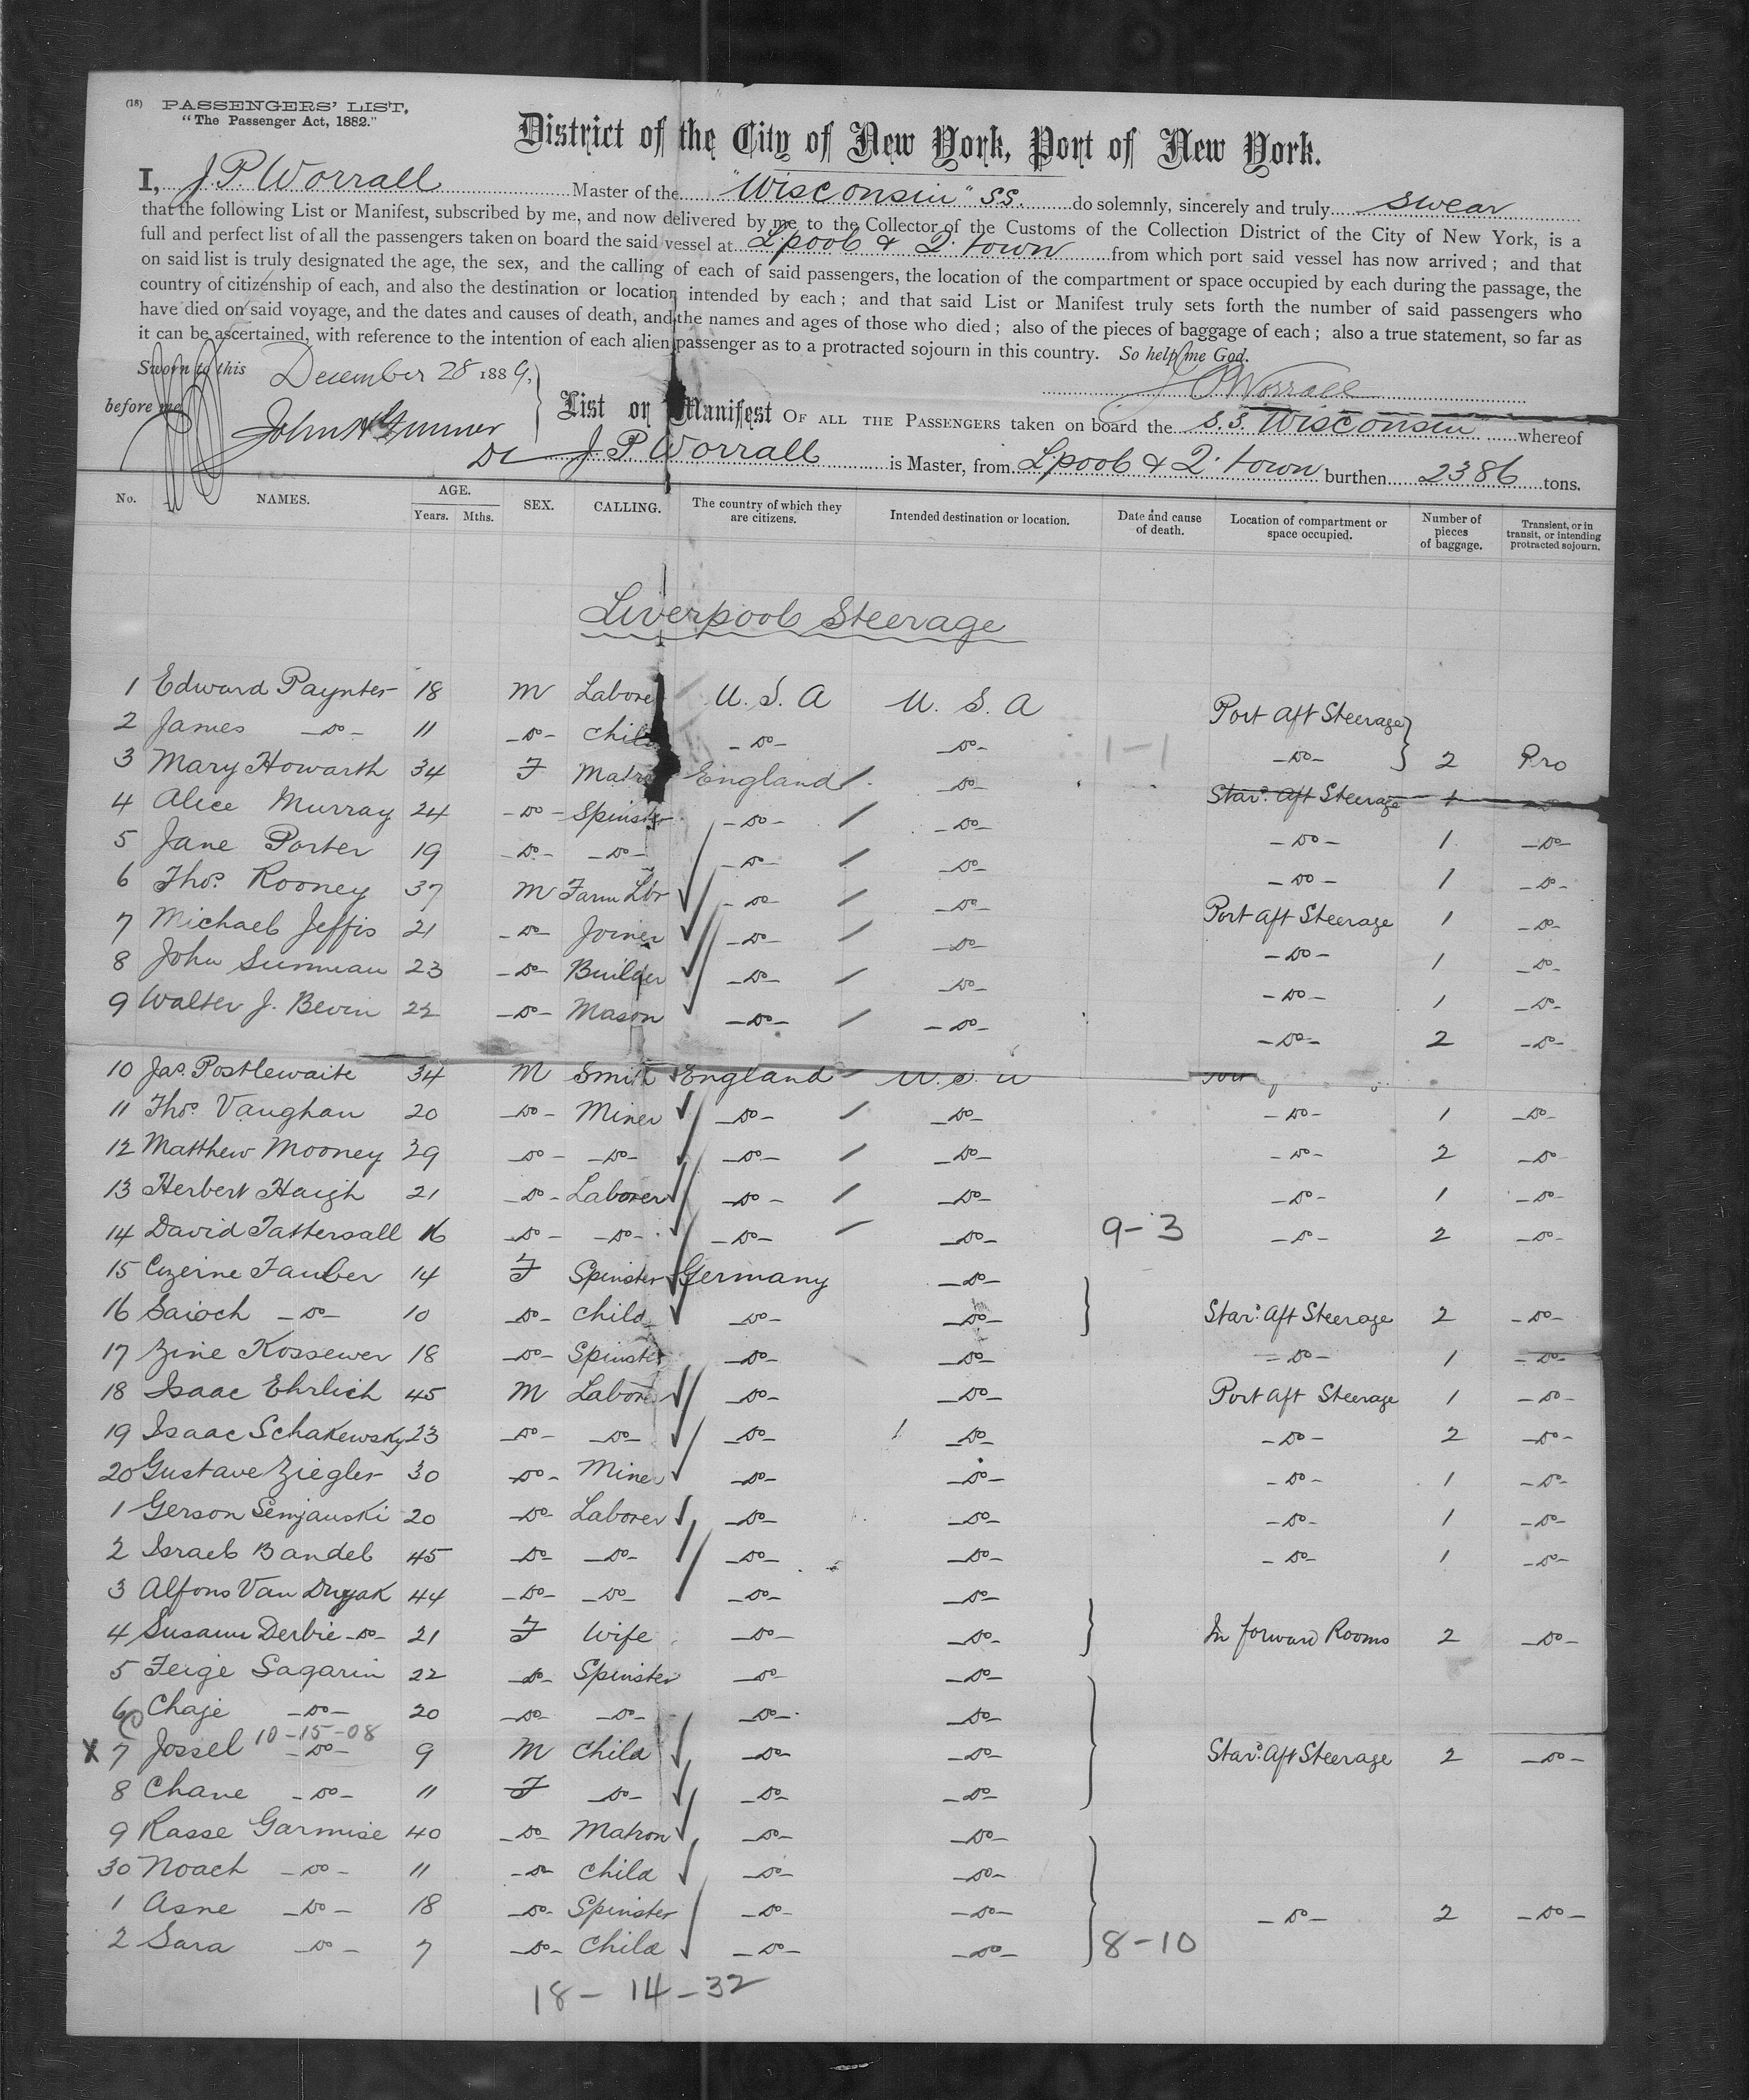 (18) PASSENGERS' LIST.
"The Passenger Act, 1882."
District of the City of New York, Port of New York.
I, J. P. Worrall Master of the "Wisconsin" S.S. do solemnly, sincerely and truly swear
that the following List or Manifest, subscribed by me, and now delivered by me to the Collector of the Customs of the Collection District of the City of New York, is a
full and perfect list of all the passengers taken on board the said vessel at L'pool & Q'town from which port said vessel has now arrived; and that
on said list is truly designated the age, the sex, and the calling of each of said passengers, the location of the compartment or space occupied by each during the passage, the
country of citizenship of each, and also the destination or location intended by each; and that said List or Manifest truly sets forth the number of said passengers who
have died on said voyage, and the dates and causes of death, and the names and ages of those who died; also of the pieces of baggage of each; also a true statement, so far as
it can be ascertained, with reference to the intention of each alien passenger as to a protracted sojourn in this country. So help me God.
Sworn to this December 28 1889,
J P Worrall
before me
List or Manifest OF ALL THE PASSENGERS taken on board the S.S. Wisconsin whereof
J. P. Worrall is Master, from L'pool & Q'town burthen 2386 tons.
No. NAMES. AGE. Years. Mths. SEX. CALLING. The country of which they are citizens. Intended destination or location. Date and cause of death. Location of compartment or space occupied. Number of pieces of baggage. Transient, or in transit, or intending protracted sojourn.
Liverpool Steerage
1 Edward Paynter 18 M Labore U. S. A U. S. A Port Aft Steerage
2 James -do- 11 -do- Child -do- -do- 1-1 -do- 2 Pro
3 Mary Howarth 34 F Matro England -do- Star'd. Aft Steerage 1 -do-
4 Alice Murray 24 -do- Spinster -do- -do- -do- 1 -do-
5 Jane Porter 19 -do- -do- -do- -do- -do- 1 -do-
6 Thos. Rooney 37 M Farm Lbr -do- -do- Port Aft Steerage 1 -do-
7 Michael Jeffis 21 -do- Joiner -do- -do- -do- 1 -do-
8 John Sunman 23 -do- Builder -do- -do- -do- 1 -do-
9 Walter J. Bevin 22 -do- Mason -do- -do- -do- 2 -do-
10 Jas. Postlewaite 34 M Smith England U. S. A
11 Thos. Vaughan 20 -do- Miner -do- -do- -do- 1 -do-
12 Matthew Mooney 39 -do- -do- -do- -do- -do- 2 -do-
13 Herbert Haigh 21 -do- Laborer -do- -do- -do- 1 -do-
14 David Tattersall 16 -do- -do- -do- -do- 9-3 -do- 2 -do-
15 Czerne Tauber 14 F Spinster Germany -do-
16 Saioch -do- 10 -do- Child -do- -do- Star'd. Aft Steerage 2 -do-
17 Zine Kossewer 18 -do- Spinster -do- -do- -do- 1 -do-
18 Isaac Ehrlich 45 M Labore -do- -do- Port Aft Steerage 1 -do-
19 Isaac Schakewsky 23 -do- -do- -do- -do- -do- 2 -do-
20 Gustave Ziegler 30 -do- Miner -do- -do- -do- 1 -do-
1 Gerson Semjauski 20 -do- Laborer -do- -do- -do- 1 -do-
2 Israel Bandel 45 -do- -do- -do- -do- -do- 1 -do-
3 Alfons Van Duyak 44 -do- -do- -do- -do-
4 Susann Derbie -do- 21 F Wife -do- -do- In forward Rooms 2 -do-
5 Feige Sagarin 22 -do- Spinster -do- -do-
6 Chaje -do- 20 -do- -do- -do- -do-
10-15-08
X 7 Jossel -do- 9 M Child -do- -do- Star'd. Aft Steerage 2 -do-
8 Chane -do- 11 F -do- -do- -do-
9 Rasse Garmise 40 -do- Matron -do- -do-
30 Noach -do- 11 -do- Child -do- -do-
1 Asne -do- 18 -do- Spinster -do- -do- -do- 2 -do-
2 Sara -do- 7 -do- Child -do- -do- 8-10
18-14-32